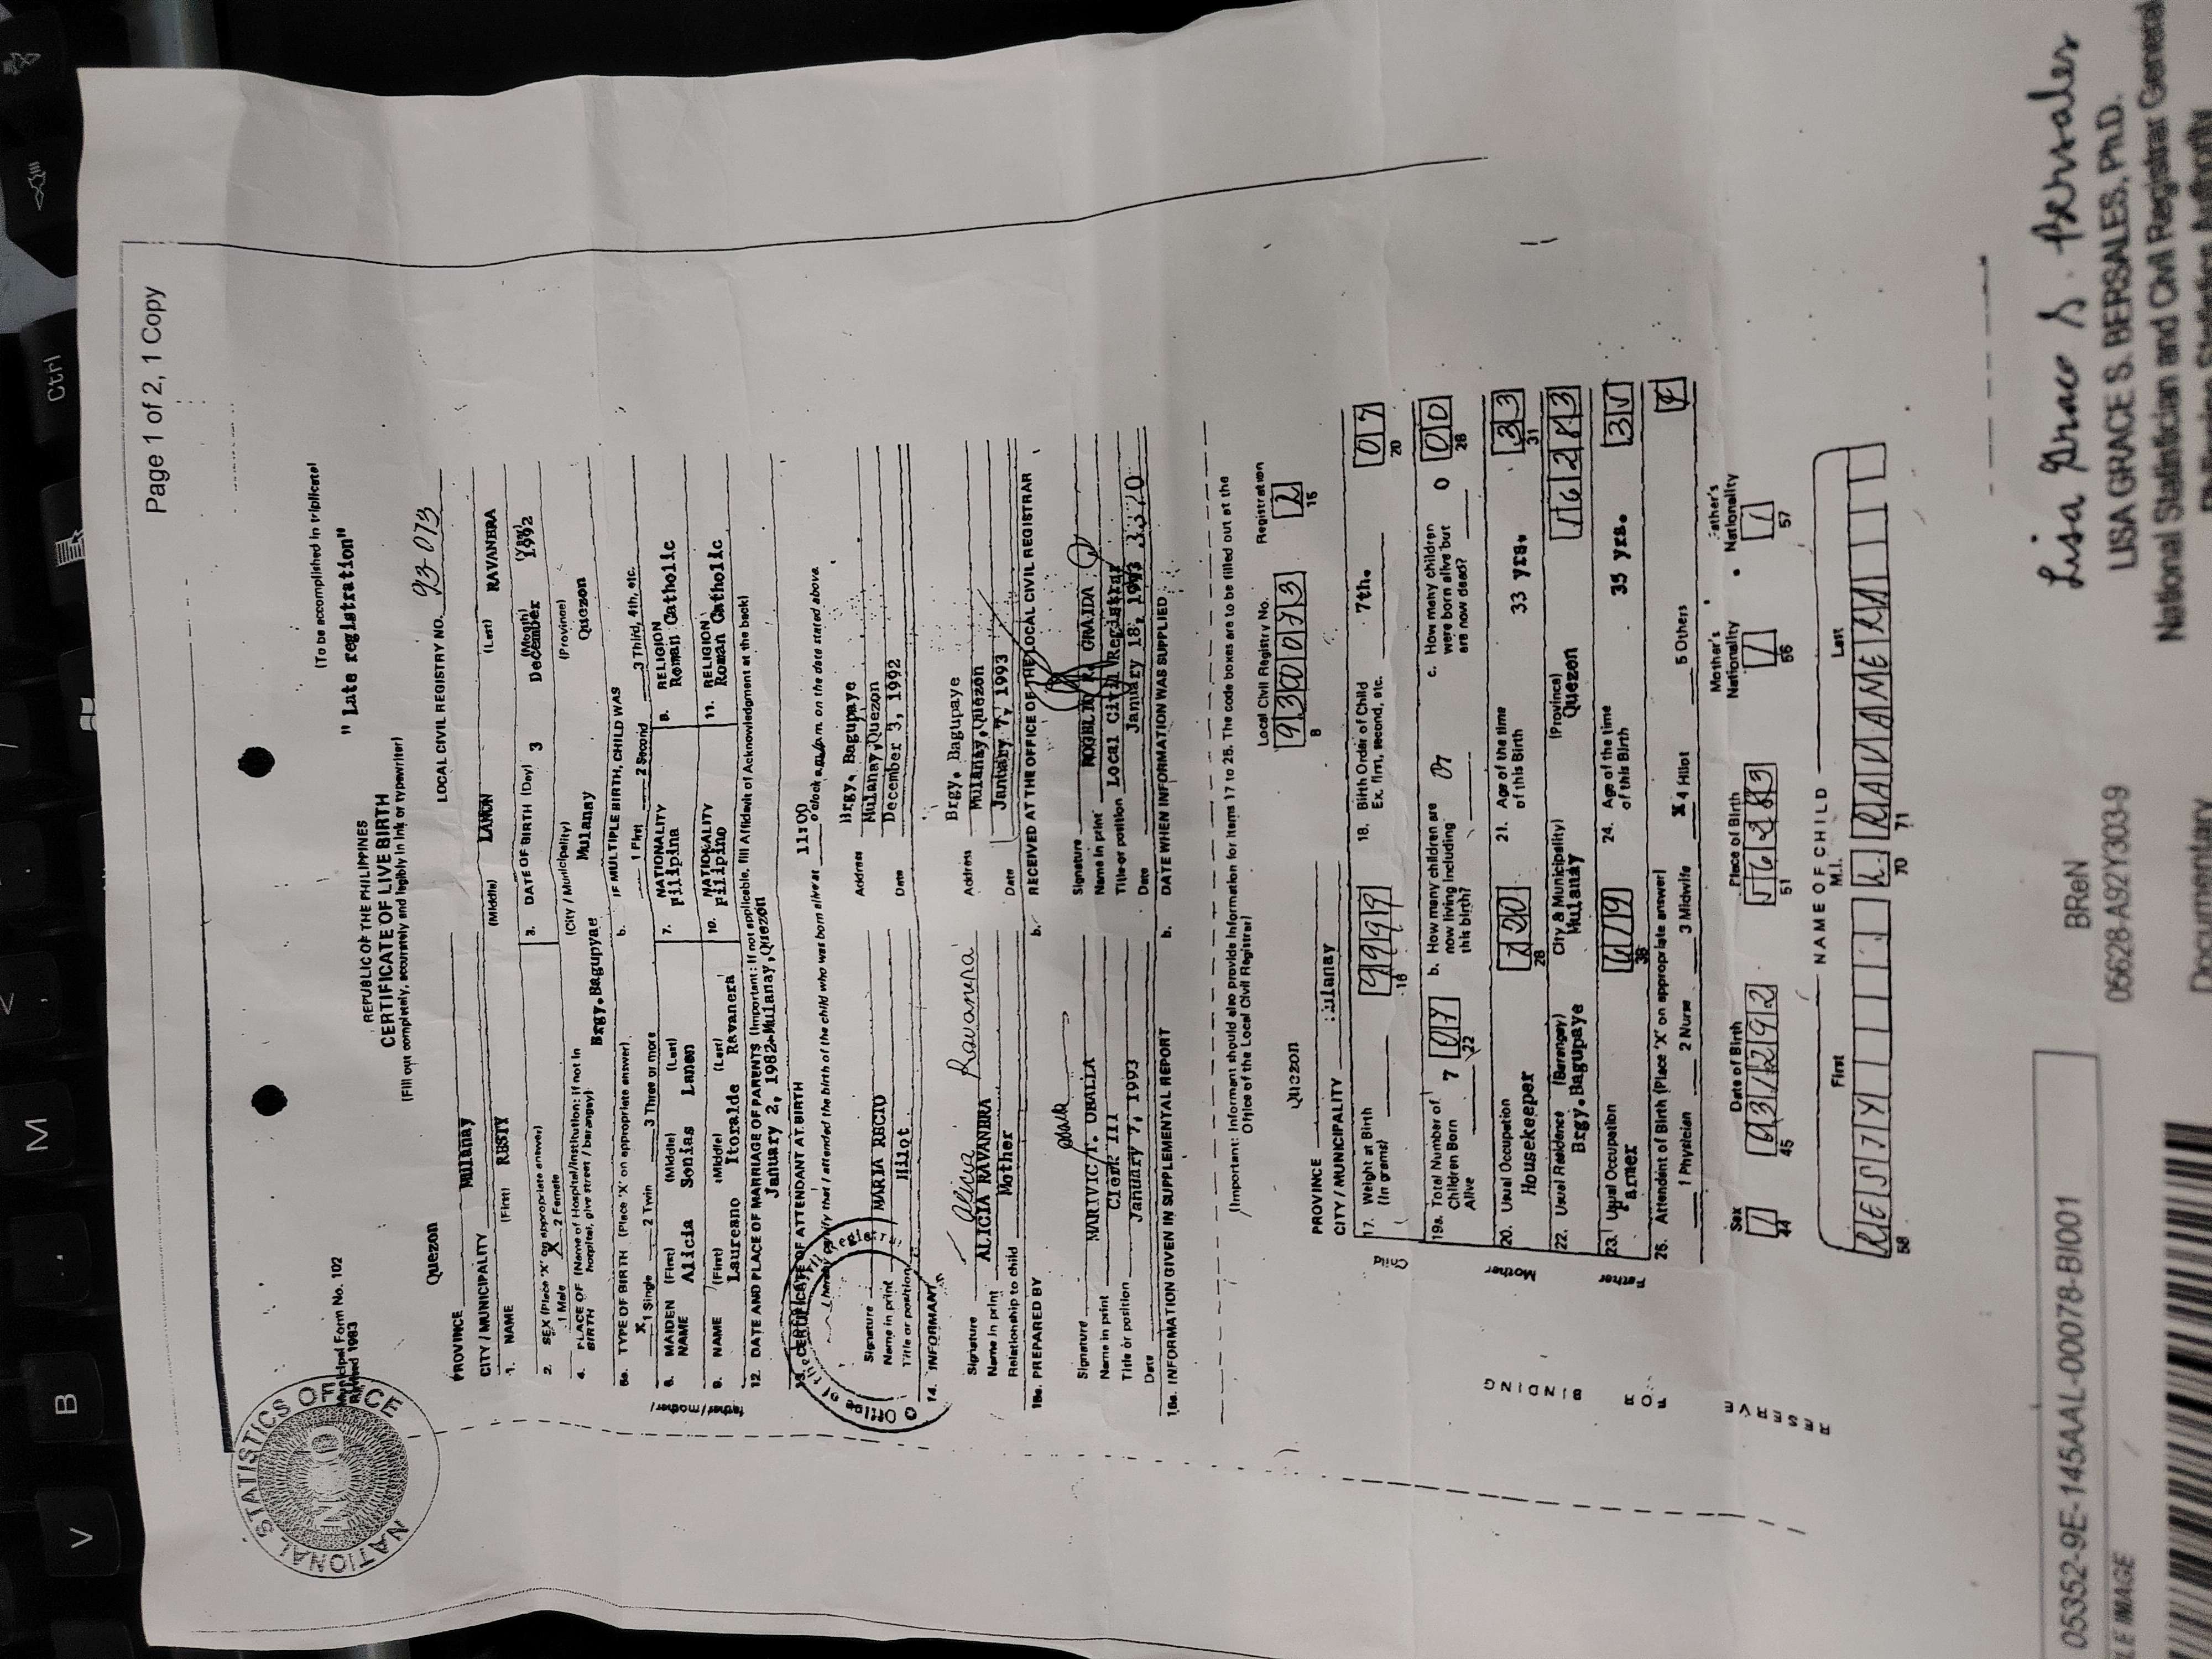 Page 1 of 2, 1 Copy
NATIONAL STATISTICS OFFICE
NSO
Municipal Form No. 102
Revised 1983
(To be accomplished in triplicate)
REPUBLIC OF THE PHILIPPINES
CERTIFICATE OF LIVE BIRTH
(Fill out completely, accurately and legibly in ink or typewriter)
" Late registration"
LOCAL CIVIL REGISTRY NO. 93-073
PROVINCE Quezon
CITY / MUNICIPALITY Mulanay
1. NAME (First) RESTY (Middle) LANON (Last) RAVANERA
2. SEX (Place 'X' on appropriate answer)
1 Male X 2 Female
3. DATE OF BIRTH (Day) 3 (Month) December (Year) 1992
4. PLACE OF BIRTH (Name of Hospital/Institution: if not in hospital, give street / barangay) Brgy.Bagupyae (City / Municipality) Mulanay (Province) Quezon
5a. TYPE OF BIRTH (Place 'X' on appropriate answer)
X 1 Single 2 Twin 3 Three or more
b. IF MULTIPLE BIRTH, CHILD WAS
1 First 2 Second 3 Third, 4th, etc.
6. MAIDEN NAME (First) Alicia (Middle) Sonias (Last) Lanon
7. NATIONALITY Filipina
8. RELIGION Roman Catholic
9. NAME (First) Laureano (Middle) Itoralde (Last) Ravanera
10. NATIONALITY Filipino
11. RELIGION Roman Catholic
12. DATE AND PLACE OF MARRIAGE OF PARENTS (Important: If not applicable, fill Affidavit of Acknowledgment at the back)
January 2, 1982-Mulanay,Quezon
13. CERTIFICATE OF ATTENDANT AT BIRTH
I hereby certify that I attended the birth of the child who was born alive at 11:00 o'clock a.m/p.m. on the date stated above.
Signature
Name in print MARIA RECTO
Title or position Hilot
Address Brgy. Bagupaye
Mulanay,Quezon
Date December 3, 1992
14. INFORMANT
Signature Alicia Ravanera
Name in print ALICIA RAVANERA
Relationship to child Mother
Address Brgy. Bagupaye
Mulanay,Quezon
Date January 7, 1993
15a. PREPARED BY
Signature
Name in print MARIVIC T. OBALLA
Title or position Clerk III
Date January 7, 1993
b. RECEIVED AT THE OFFICE OF THE LOCAL CIVIL REGISTRAR
Signature
Name in print ROGELIO GRAIDA
Title or position Local Civil Registrar
Date January 18, 1993
16a. INFORMATION GIVEN IN SUPPLEMENTAL REPORT
b. DATE WHEN INFORMATION WAS SUPPLIED
(Important: Informant should also provide information for items 17 to 25. The code boxes are to be filled out at the
Office of the Local Civil Registrar)
PROVINCE Quezon
CITY / MUNICIPALITY Mulanay
Local Civil Registry No. 9300073
8
Registration 2
15
Child
17. Weight at Birth (In grams) 9999
16
18. Birth Order of Child Ex. first, second, etc. 7th. 07
20
19a. Total Number of Children Born Alive 7 07
22
b. How many children are now living including this birth? 07
c. How many children were born alive but are now dead? 0 00
26
Mother
20. Usual Occupation Housekeeper
28
21. Age at the time of this Birth 33 yrs. 33
31
22. Usual Residence (Barangay) Brgy.Bagupaye (City & Municipality) Mulanay (Province) Quezon
Father
23. Usual Occupation Farmer
24. Age at the time of this Birth 35 yrs.
25. Attendant of Birth (Place 'X' on appropriate answer)
1 Physician 2 Nurse 3 Midwife X 4 Hilot 5 Others
Sex 1
44
Date of Birth 031292
45
Place of Birth
51
Mother's Nationality 1
56
Father's Nationality 1
57
NAME OF CHILD
First M.I. Last
RESTY L RAVANERA
58 70 71
RESERVE FOR BINDING
05352-9E-145AAL-00078-BI001
BReN
05628-A92Y303-9
Documentary
Lisa Grace S. Bersales
LISA GRACE S. BERSALES, Ph.D.
National Statistician and Civil Registrar General
Philippine Statistics Authority
V
B
M
Ctrl